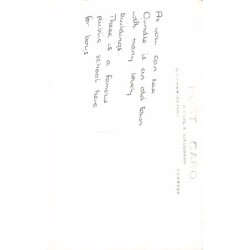 POST CARD
As you can see
Oundle is an old town
with many lovely
buildings
There is a famous
public school here
for boys